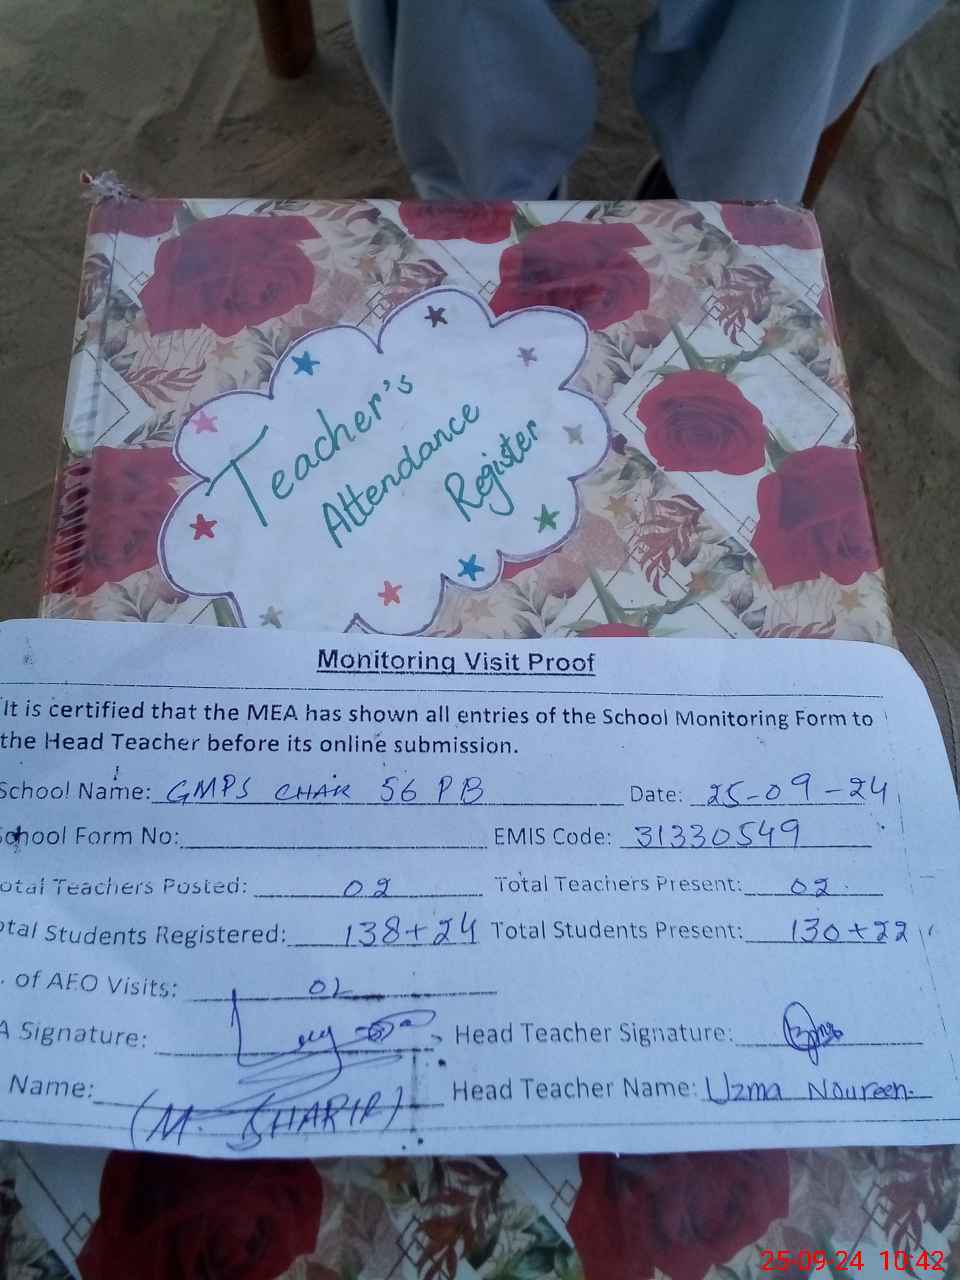 Teacher's
Attendance
Register
Monitoring Visit Proof
It is certified that the MEA has shown all entries of the School Monitoring Form to
the Head Teacher before its online submission.
School Name: GMPS CHAK 56 PB Date: 25-09-24
School Form No: EMIS Code: 31330549
otal Teachers Posted: 02 Total Teachers Present: 02
otal Students Registered: 138+24 Total Students Present: 130+22
. of AEO Visits: 02
A Signature: Head Teacher Signature:
Name: (M. Head Teacher Name: Uzma Noureen.
25-09-24 10:42